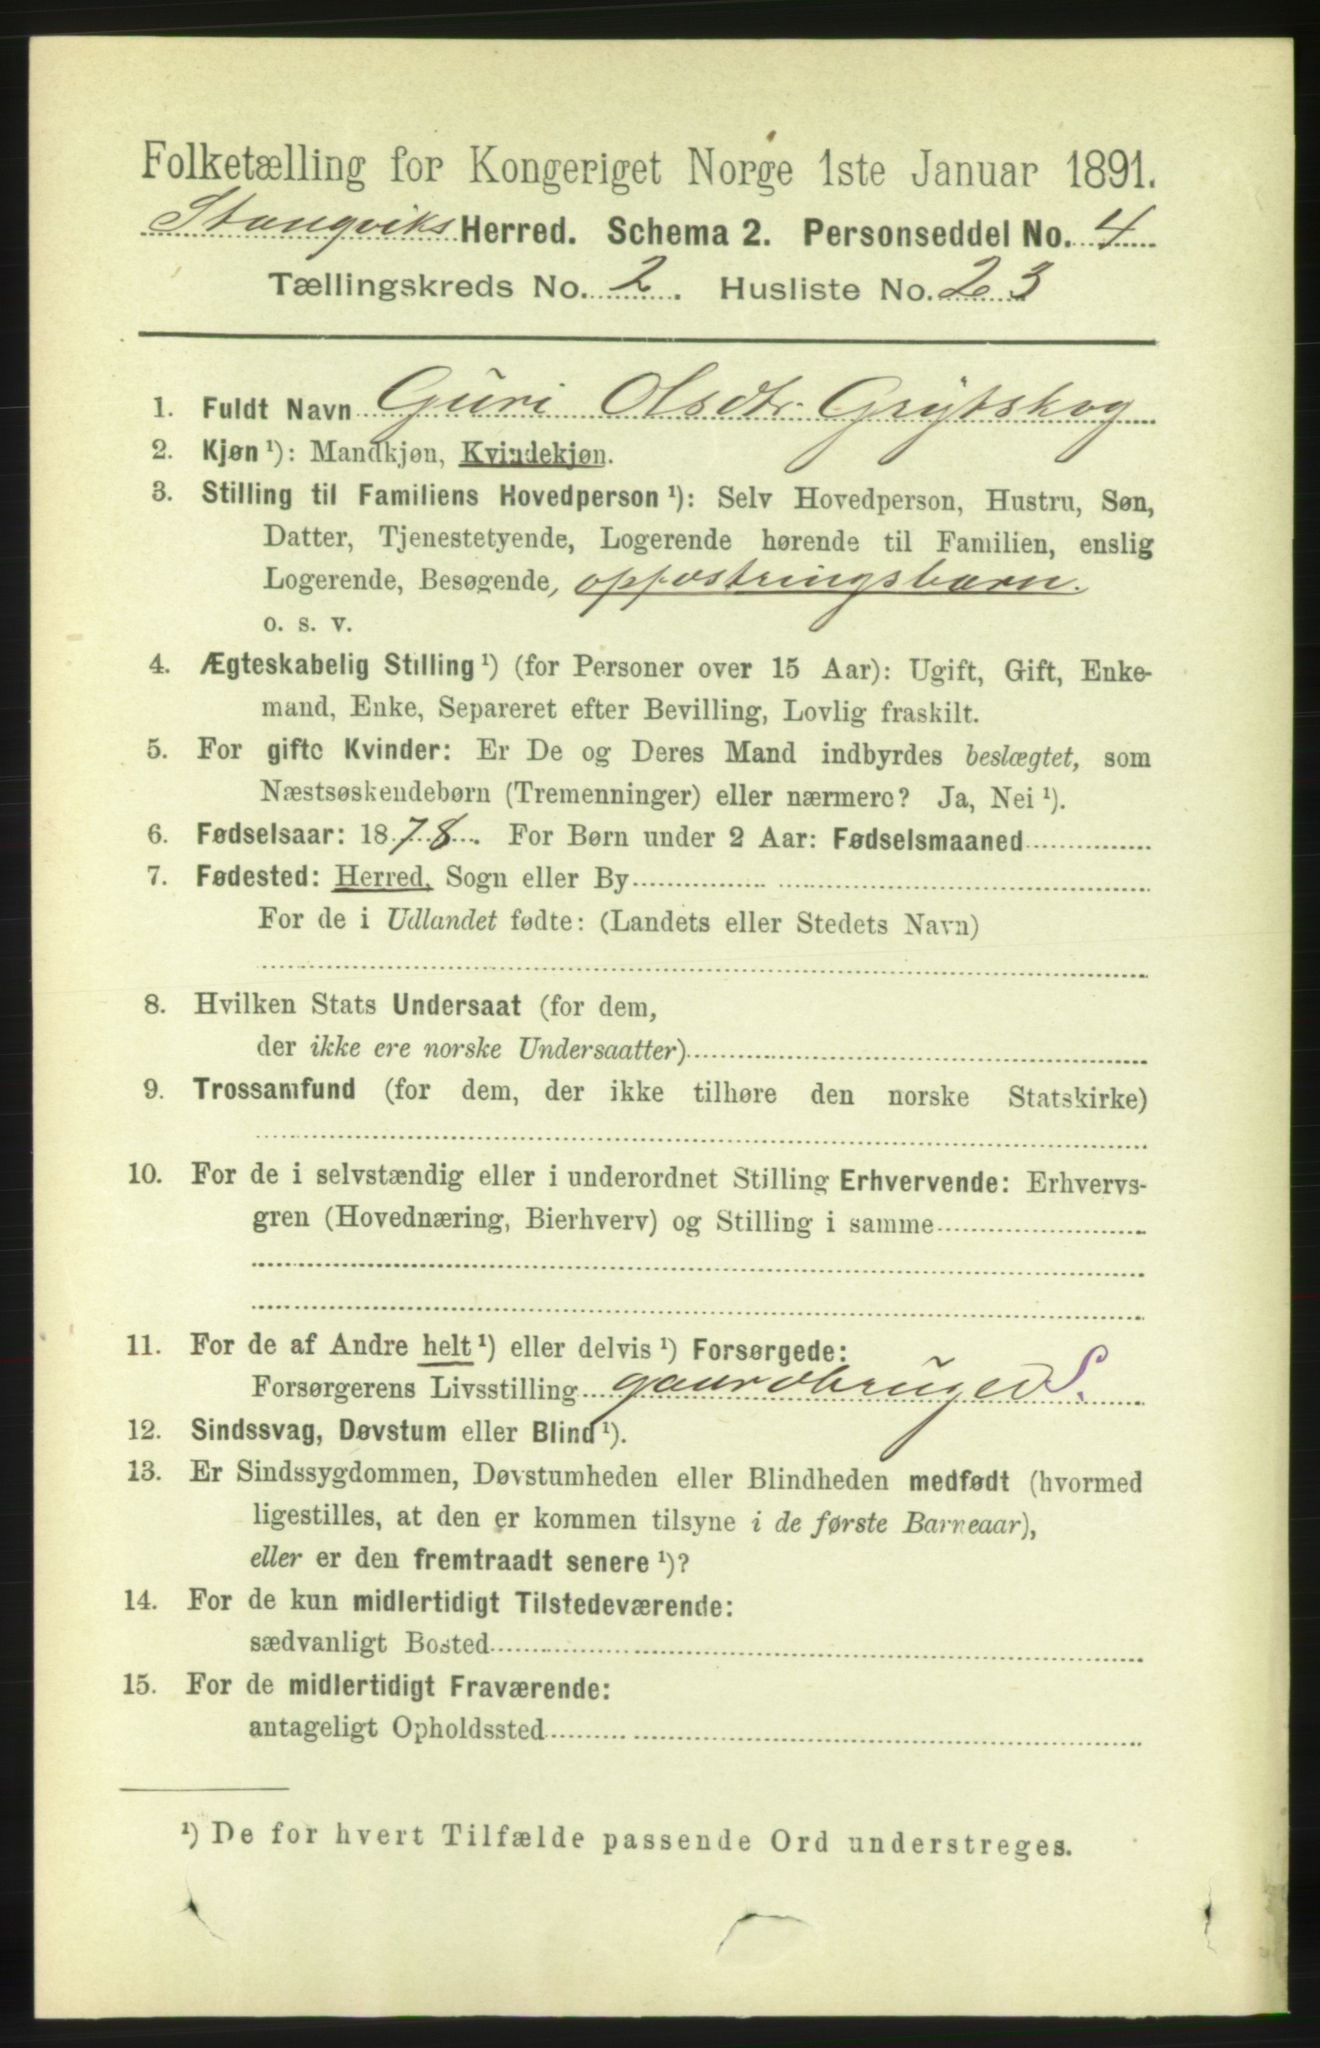 Folketælling for Kongeriget Norge 1ste Januar 1891.
Stangviks Herred. Schema 2. Personseddel No. 4
Tællingskreds No. 2. Husliste No. 23
1. Fuldt Navn Guri Olsdtr. Grytskog
2. Kjøn ¹): Mandkjøn, Kvindekjøn.
3. Stilling til Familiens Hovedperson ¹): Selv Hovedperson, Hustru, Søn,
Datter, Tjenestetyende, Logerende hørende til Familien, enslig
Logerende, Besøgende, oppostringsbarn.
o. s. v.
4. Ægteskabelig Stilling ¹) (for Personer over 15 Aar): Ugift, Gift, Enke-
mand, Enke, Separeret efter Bevilling, Lovlig fraskilt.
5. For gifte Kvinder: Er De og Deres Mand indbyrdes beslægtet, som
Næstsøskendebørn (Tremenninger) eller nærmere? Ja, Nei ¹).
6. Fødselsaar: 1878. For Børn under 2 Aar: Fødselsmaaned
7. Fødested: Herred, Sogn eller By
For de i Udlandet fødte: (Landets eller Stedets Navn)
8. Hvilken Stats Undersaat (for dem,
der ikke ere norske Undersaatter)
9. Trossamfund (for dem, der ikke tilhøre den norske Statskirke)
10. For de i selvstændig eller i underordnet Stilling Erhvervende: Erhvervs-
gren (Hovednæring, Bierhverv) og Stilling i samme
11. For de af Andre helt ¹) eller delvis ¹) Forsørgede:
Forsørgerens Livsstilling gaardbruger S.
12. Sindssvag, Døvstum eller Blind ¹).
13. Er Sindssygdommen, Døvstumheden eller Blindheden medfødt (hvormed
ligestilles, at den er kommen tilsyne i de første Barneaar),
eller er den fremtraadt senere ¹)?
14. For de kun midlertidigt Tilstedeværende:
sædvanligt Bosted
15. For de midlertidigt Fraværende:
antageligt Opholdssted
¹) De for hvert Tilfælde passende Ord understreges.